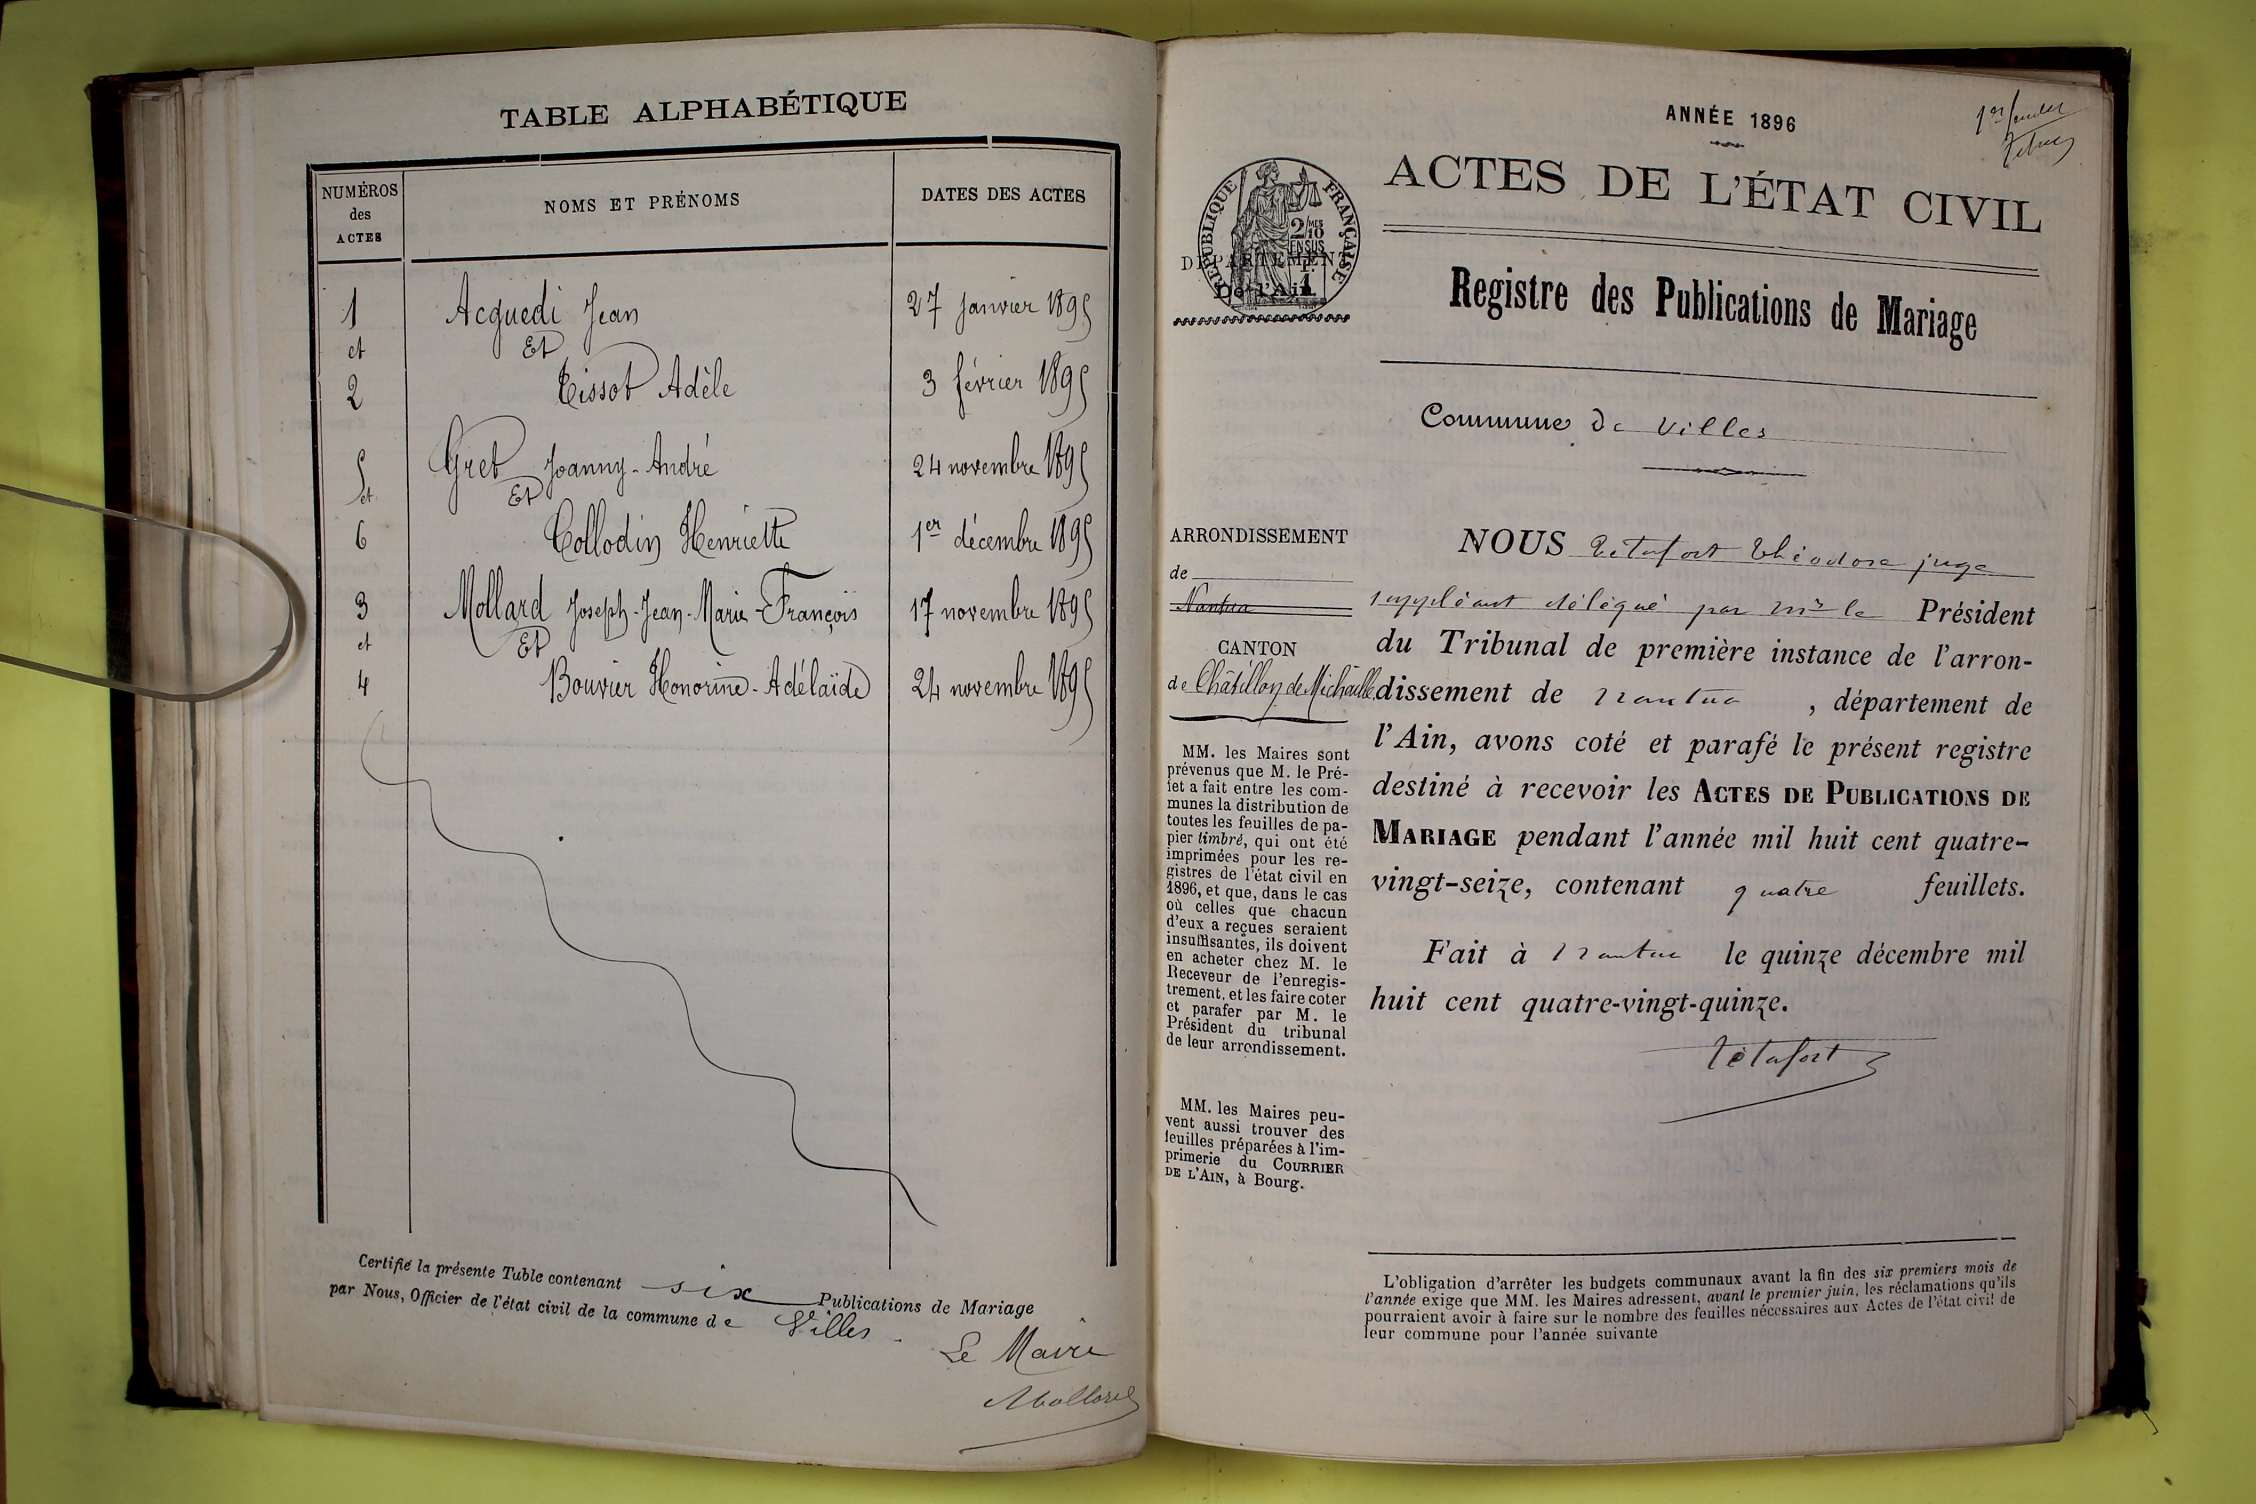 TABLE ALPHABÉTIQUE
NUMÉROS
des
ACTES
NOMS ET PRÉNOMS
DATES DES ACTES
1 Acquedi Jean 27 janvier 1895
et Et
2 Tissot Adèle 3 février 1895
5 Gret Joanny-André 24 novembre 1895
et Et
6 Collodin Henriette 1er décembre 1895
3 Mollard Joseph-Jean-Marie-François 17 novembre 1895
et Et
4 Bouvier Honorine-Adélaïde 24 novembre 1895
Certifié la présente Table contenant six Publications de Mariage
par Nous, Officier de l'état civil de la commune de Villes.
Le Maire
Mollard
1er feuillet
ANNÉE 1896
ACTES DE L'ÉTAT CIVIL
RÉPUBLIQUE FRANÇAISE
DÉPARTEMENT
De l'Ain
Registre des Publications de Mariage
Commune de Villes
ARRONDISSEMENT
de
Nantua
CANTON
de Châtillon de Michaille
MM. les Maires sont
prévenus que M. le Pré-
fet a fait entre les com-
munes la distribution de
toutes les feuilles de pa-
pier timbré, qui ont été
imprimées pour les re-
gistres de l'état civil en
1896, et que, dans le cas
où celles que chacun
d'eux a reçues seraient
insuffisantes, ils doivent
en acheter chez M. le
Receveur de l'enregis-
trement, et les faire coter
et parafer par M. le
Président du tribunal
de leur arrondissement.
MM. les Maires peu-
vent aussi trouver des
feuilles préparées à l'im-
primerie du COURRIER
DE L'AIN, à Bourg.
NOUS Tétafort Théodore juge
suppléant délégué par Mr le Président
du Tribunal de première instance de l'arron-
dissement de Nantua, département de
l'Ain, avons coté et parafé le présent registre
destiné à recevoir les ACTES DE PUBLICATIONS DE
MARIAGE pendant l'année mil huit cent quatre-
vingt-seize, contenant quatre feuillets.
Fait à Nantua le quinze décembre mil
huit cent quatre-vingt-quinze.
Tétafort
L'obligation d'arrêter les budgets communaux avant la fin des six premiers mois de
l'année exige que MM. les Maires adressent, avant le premier juin, les réclamations qu'ils
pourraient avoir à faire sur le nombre des feuilles nécessaires aux Actes de l'état civil de
leur commune pour l'année suivante